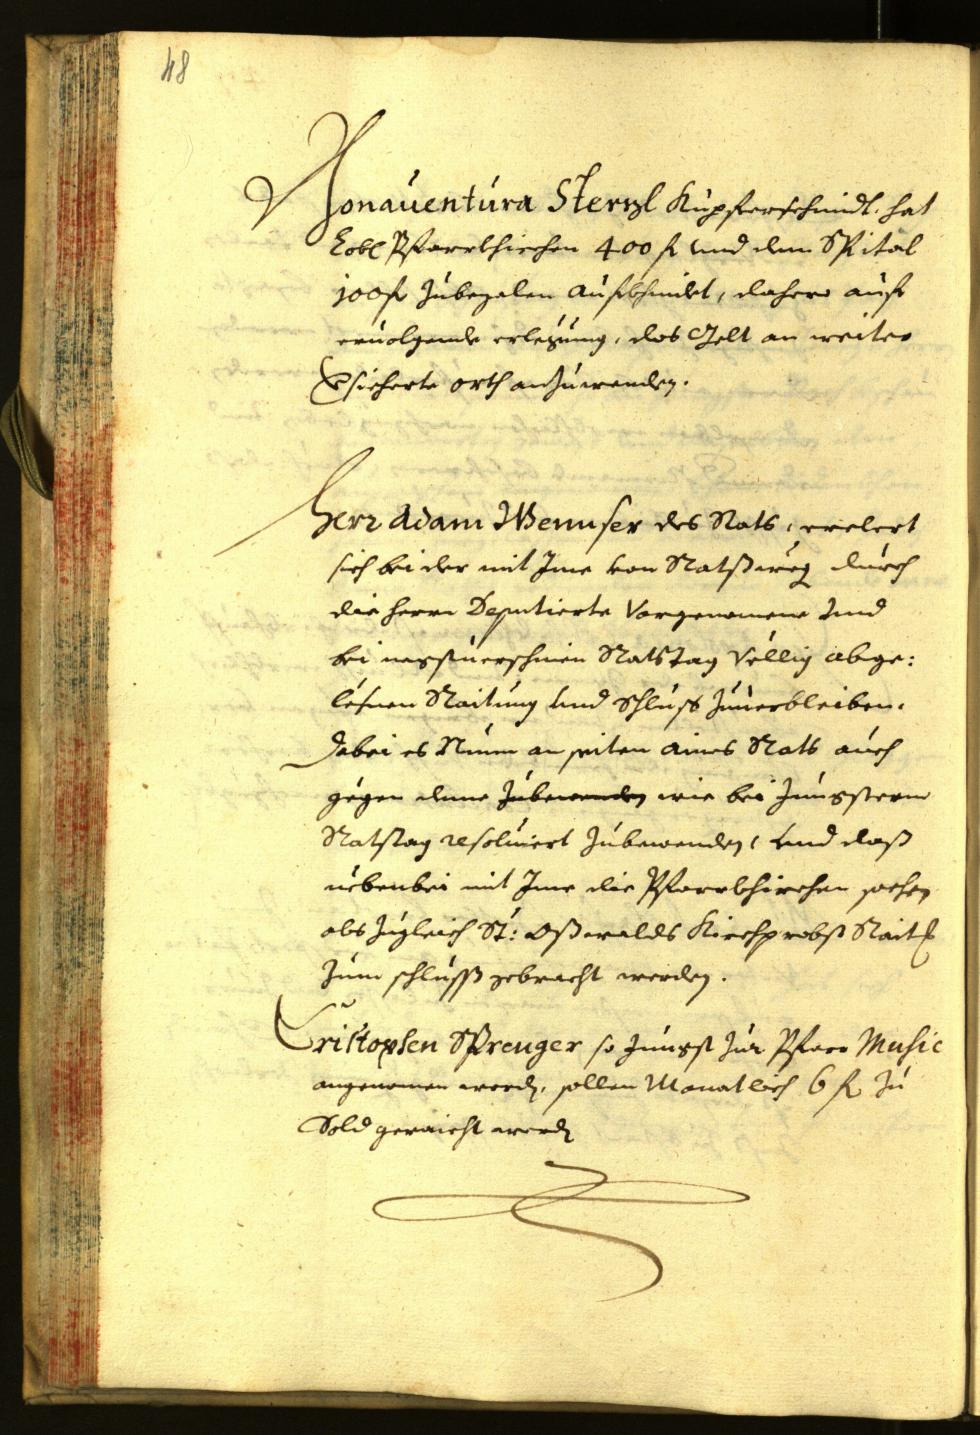 48
Bonauentúra Sterzl Kupferschmidt. hat
Lobl Pfarrkhirchen 400 f und dem Spital
100 f zúbezalen aufkhindet, dahero auf
ervolgende erlegung, das Gelt an weiter
versicherte orth anzúwenden.
Herr Adam Wennser des Rats, erclert
sich bei der mit Ime von Ratßweg dúrch
die herrn Deputierte Vorgenomene und
bei Ratstag Völlig abge:
lesnen Raitúng und Schlúß zúverbleiben.
dabei es Núnn an seiten aines Rats aúch
gegen deme zúbewenden wie bei Júngstem
Ratstag resoluiert zúbewenden, und daß
nebenbei mit Ime die Pfarrkhirchen sachen
als zúgleich St: Oßwalds Kirchprobst Rait
zúm schlúß gebracht werden.
Cristophen Sprenger so Júngst zúr Pfarr Music
angenomen worden, sollen Monatlich 6 f zú
Sold geraicht werden